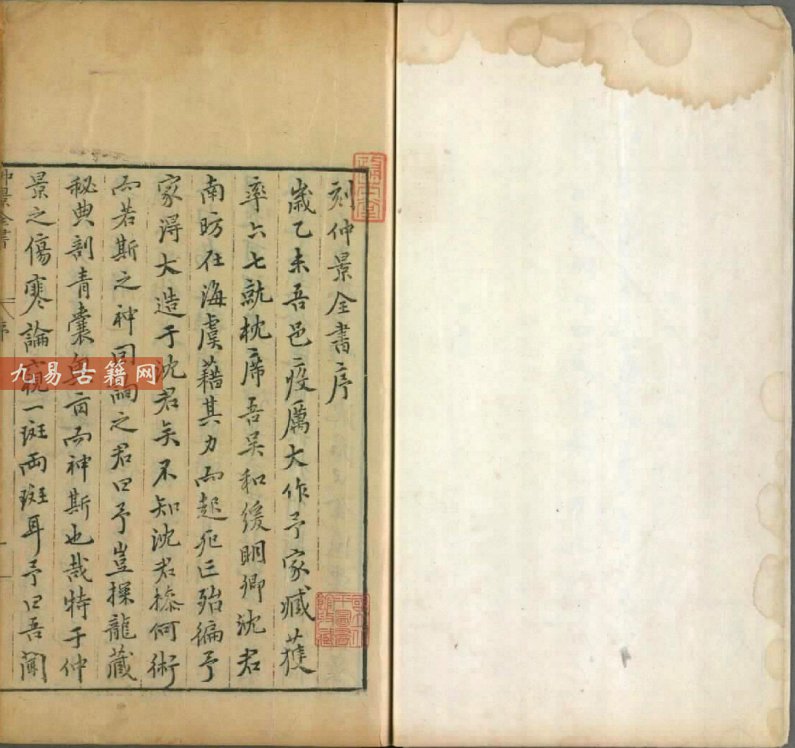 刻仲景全書序
歲乙未吾邑疫厲大作予家臧獲
率六七就枕席吾吳和緩明卿沈君
南昉在海虞藉其力而起死亡殆徧予
家淂大造于沈君矣不知沈君操何術
而若斯之神因詢之君曰予豈探龍藏
秘典剖青囊奧旨而神斯也哉特于仲
景之傷寒論窺一斑兩斑耳予曰吾聞
仲景全書
序
九易古籍网